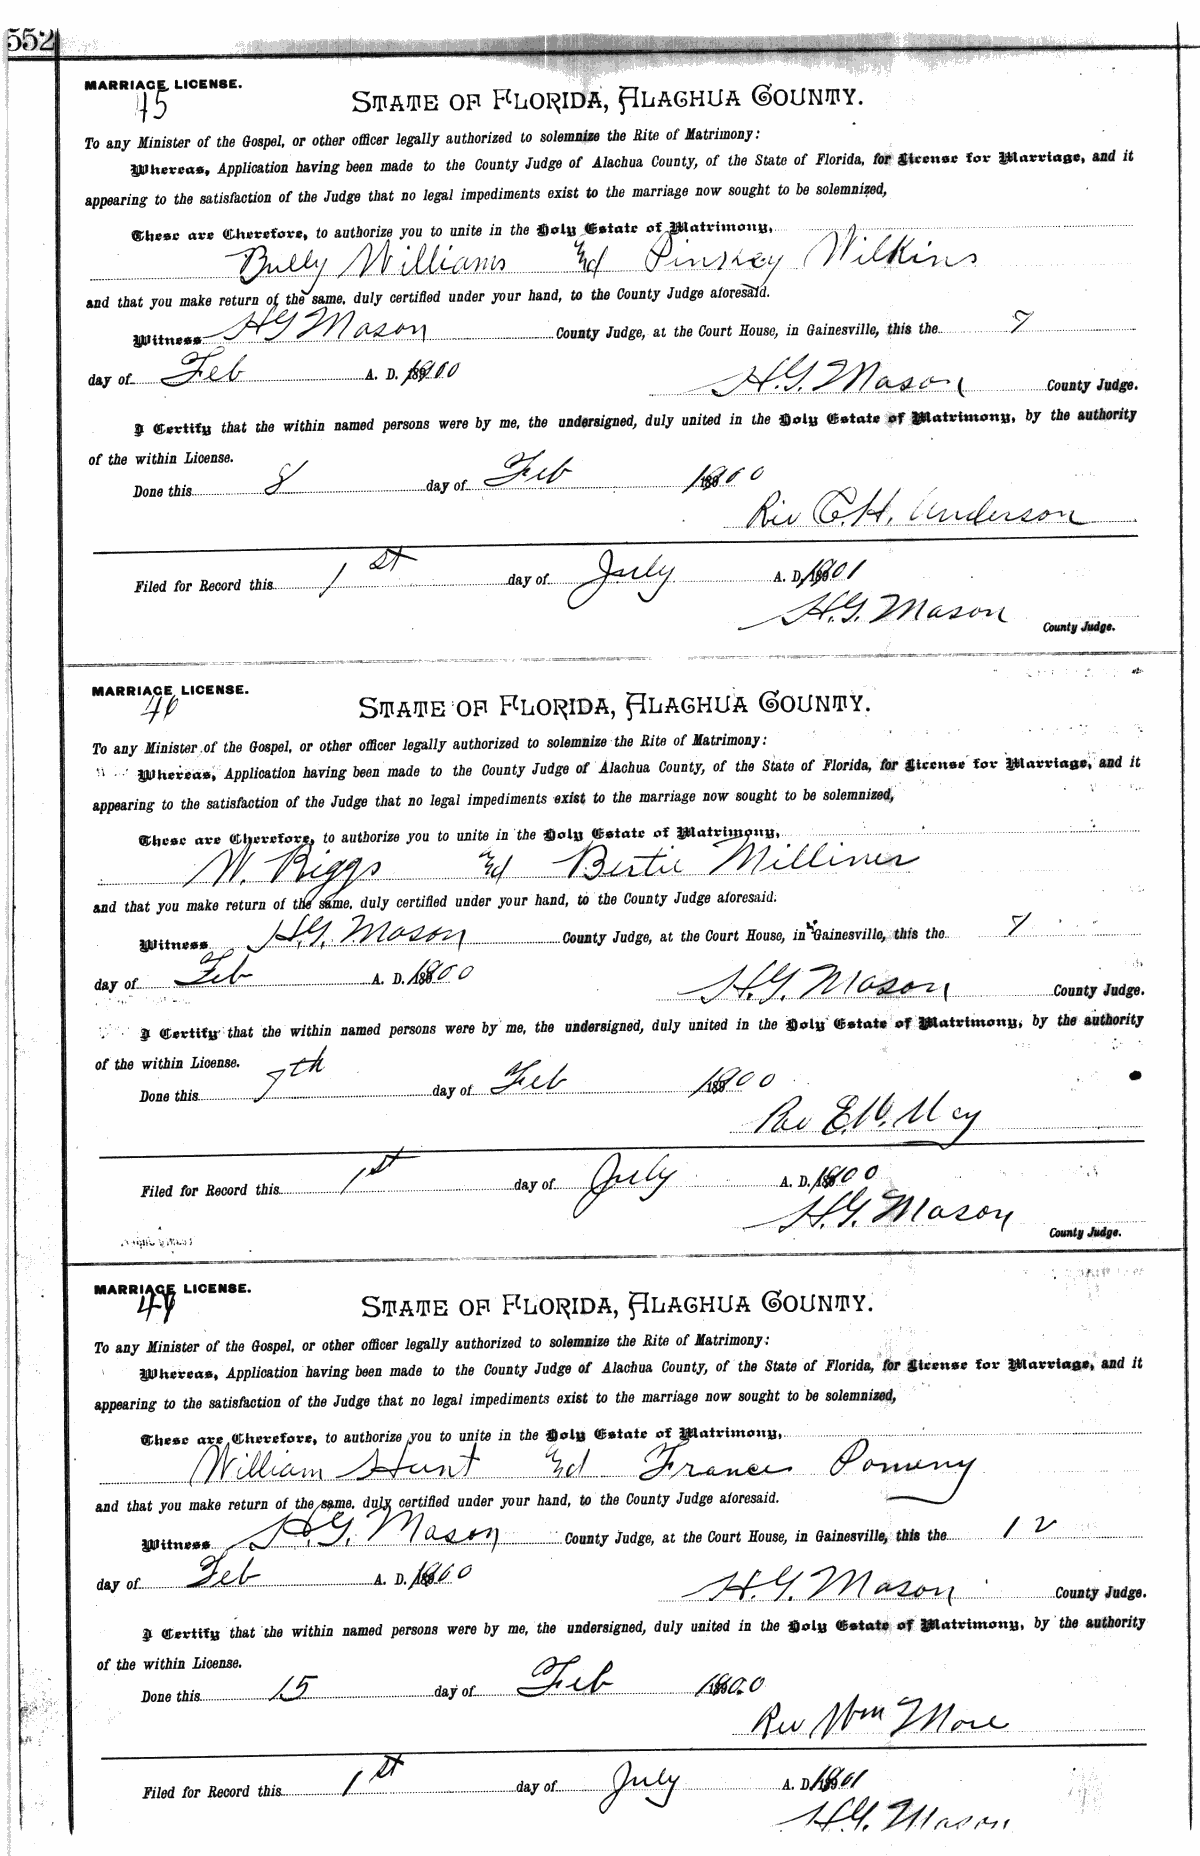 552
MARRIAGE LICENSE.
45
STATE OF FLORIDA, ALACHUA COUNTY.
To any Minister of the Gospel, or other officer legally authorized to solemnize the Rite of Matrimony:
Whereas, Application having been made to the County Judge of Alachua County, of the State of Florida, for License for Marriage, and it
appearing to the satisfaction of the Judge that no legal impediments exist to the marriage now sought to be solemnized,
These are Therefore, to authorize you to unite in the Holy Estate of Matrimony,
Bully Williams and Pinskey Wilkins
and that you make return of the same, duly certified under your hand, to the County Judge aforesaid.
Witness H G Mason County Judge, at the Court House, in Gainesville, this the 7
day of Feb A. D. 1900 H.G. Mason County Judge.
I Certify that the within named persons were by me, the undersigned, duly united in the Holy Estate of Matrimony, by the authority
of the within License.
Done this 8 day of Feb 1900
Rev C.H. Anderson
Filed for Record this 1st day of July A. D. 1901
H.G. Mason
County Judge.
MARRIAGE LICENSE.
46
STATE OF FLORIDA, ALACHUA COUNTY.
To any Minister of the Gospel, or other officer legally authorized to solemnize the Rite of Matrimony:
Whereas, Application having been made to the County Judge of Alachua County, of the State of Florida, for License for Marriage, and it
appearing to the satisfaction of the Judge that no legal impediments exist to the marriage now sought to be solemnized,
These are Therefore, to authorize you to unite in the Holy Estate of Matrimony,
W. Riggs and Bertie Milliner
and that you make return of the same, duly certified under your hand, to the County Judge aforesaid.
Witness H.G. Mason County Judge, at the Court House, in Gainesville, this the 7
day of Feb A. D. 1900 H.G. Mason County Judge.
I Certify that the within named persons were by me, the undersigned, duly united in the Holy Estate of Matrimony, by the authority
of the within License.
Done this 7th day of Feb 1900
Rev E.W.
Filed for Record this 1st day of July A. D. 1900
H.G. Mason
County Judge.
MARRIAGE LICENSE.
47
STATE OF FLORIDA, ALACHUA COUNTY.
To any Minister of the Gospel, or other officer legally authorized to solemnize the Rite of Matrimony:
Whereas, Application having been made to the County Judge of Alachua County, of the State of Florida, for License for Marriage, and it
appearing to the satisfaction of the Judge that no legal impediments exist to the marriage now sought to be solemnized,
These are Therefore, to authorize you to unite in the Holy Estate of Matrimony,
William Hunt and Frances Pomeny
and that you make return of the same, duly certified under your hand, to the County Judge aforesaid.
Witness H.G. Mason County Judge, at the Court House, in Gainesville, this the 12
day of Feb A. D. 1900 H.G. Mason County Judge.
I Certify that the within named persons were by me, the undersigned, duly united in the Holy Estate of Matrimony, by the authority
of the within License.
Done this 15 day of Feb 1900
Rev Wm More
Filed for Record this 1st day of July A. D. 1901
H.G. Mason